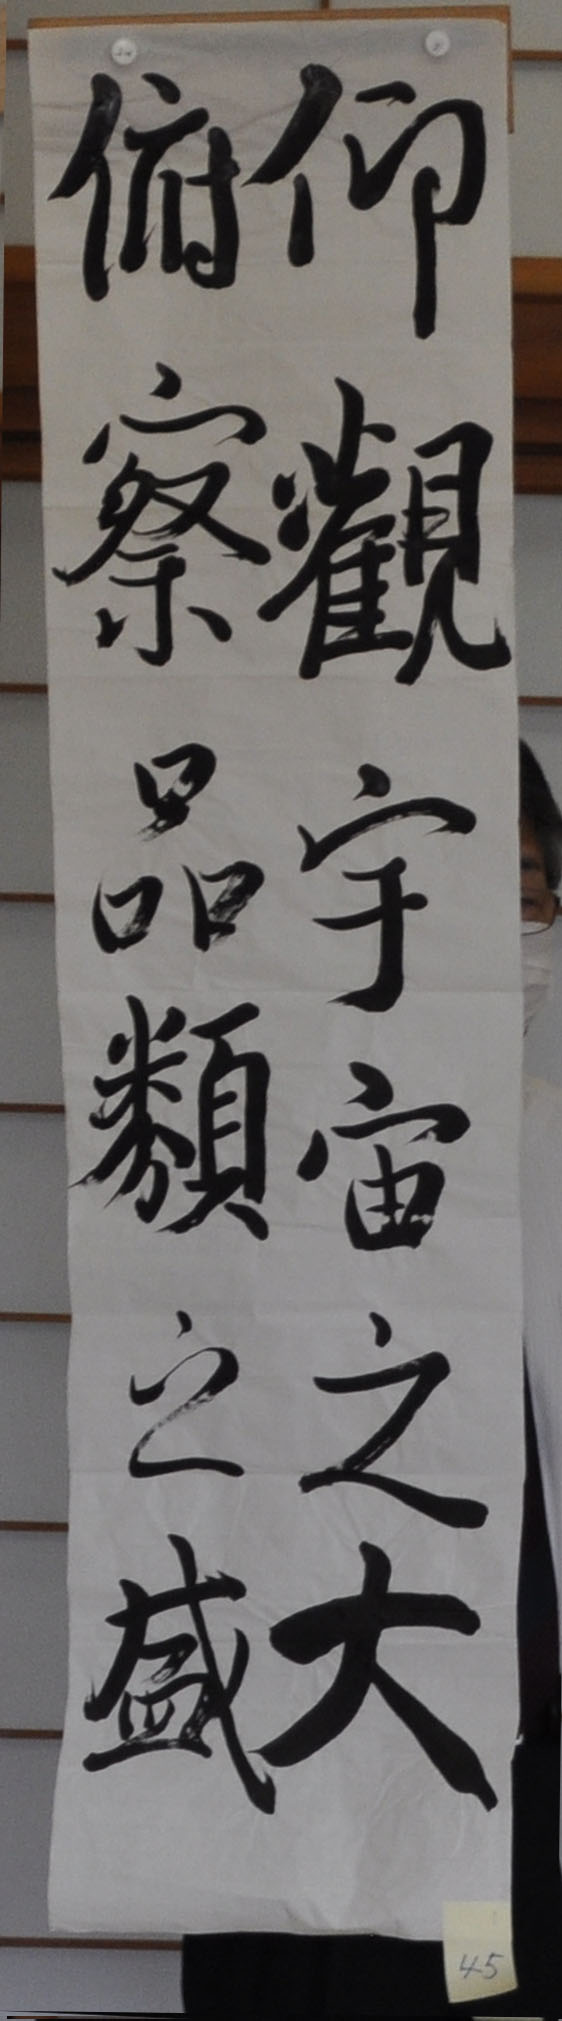 仰觀宇宙之大
俯察品類之盛
45